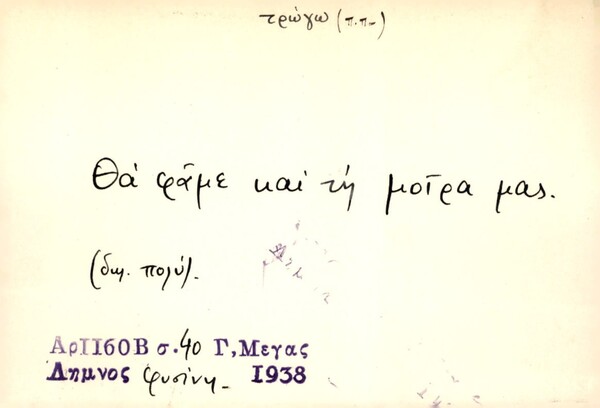 τρώγω (π.π-)
Θά φᾶμε καί τή μοῖρα μας.
(δηλ. πολύ).
Αρ1160Β σ.40 Γ,Μεγας
Λημνος Φυσίνη - 1938